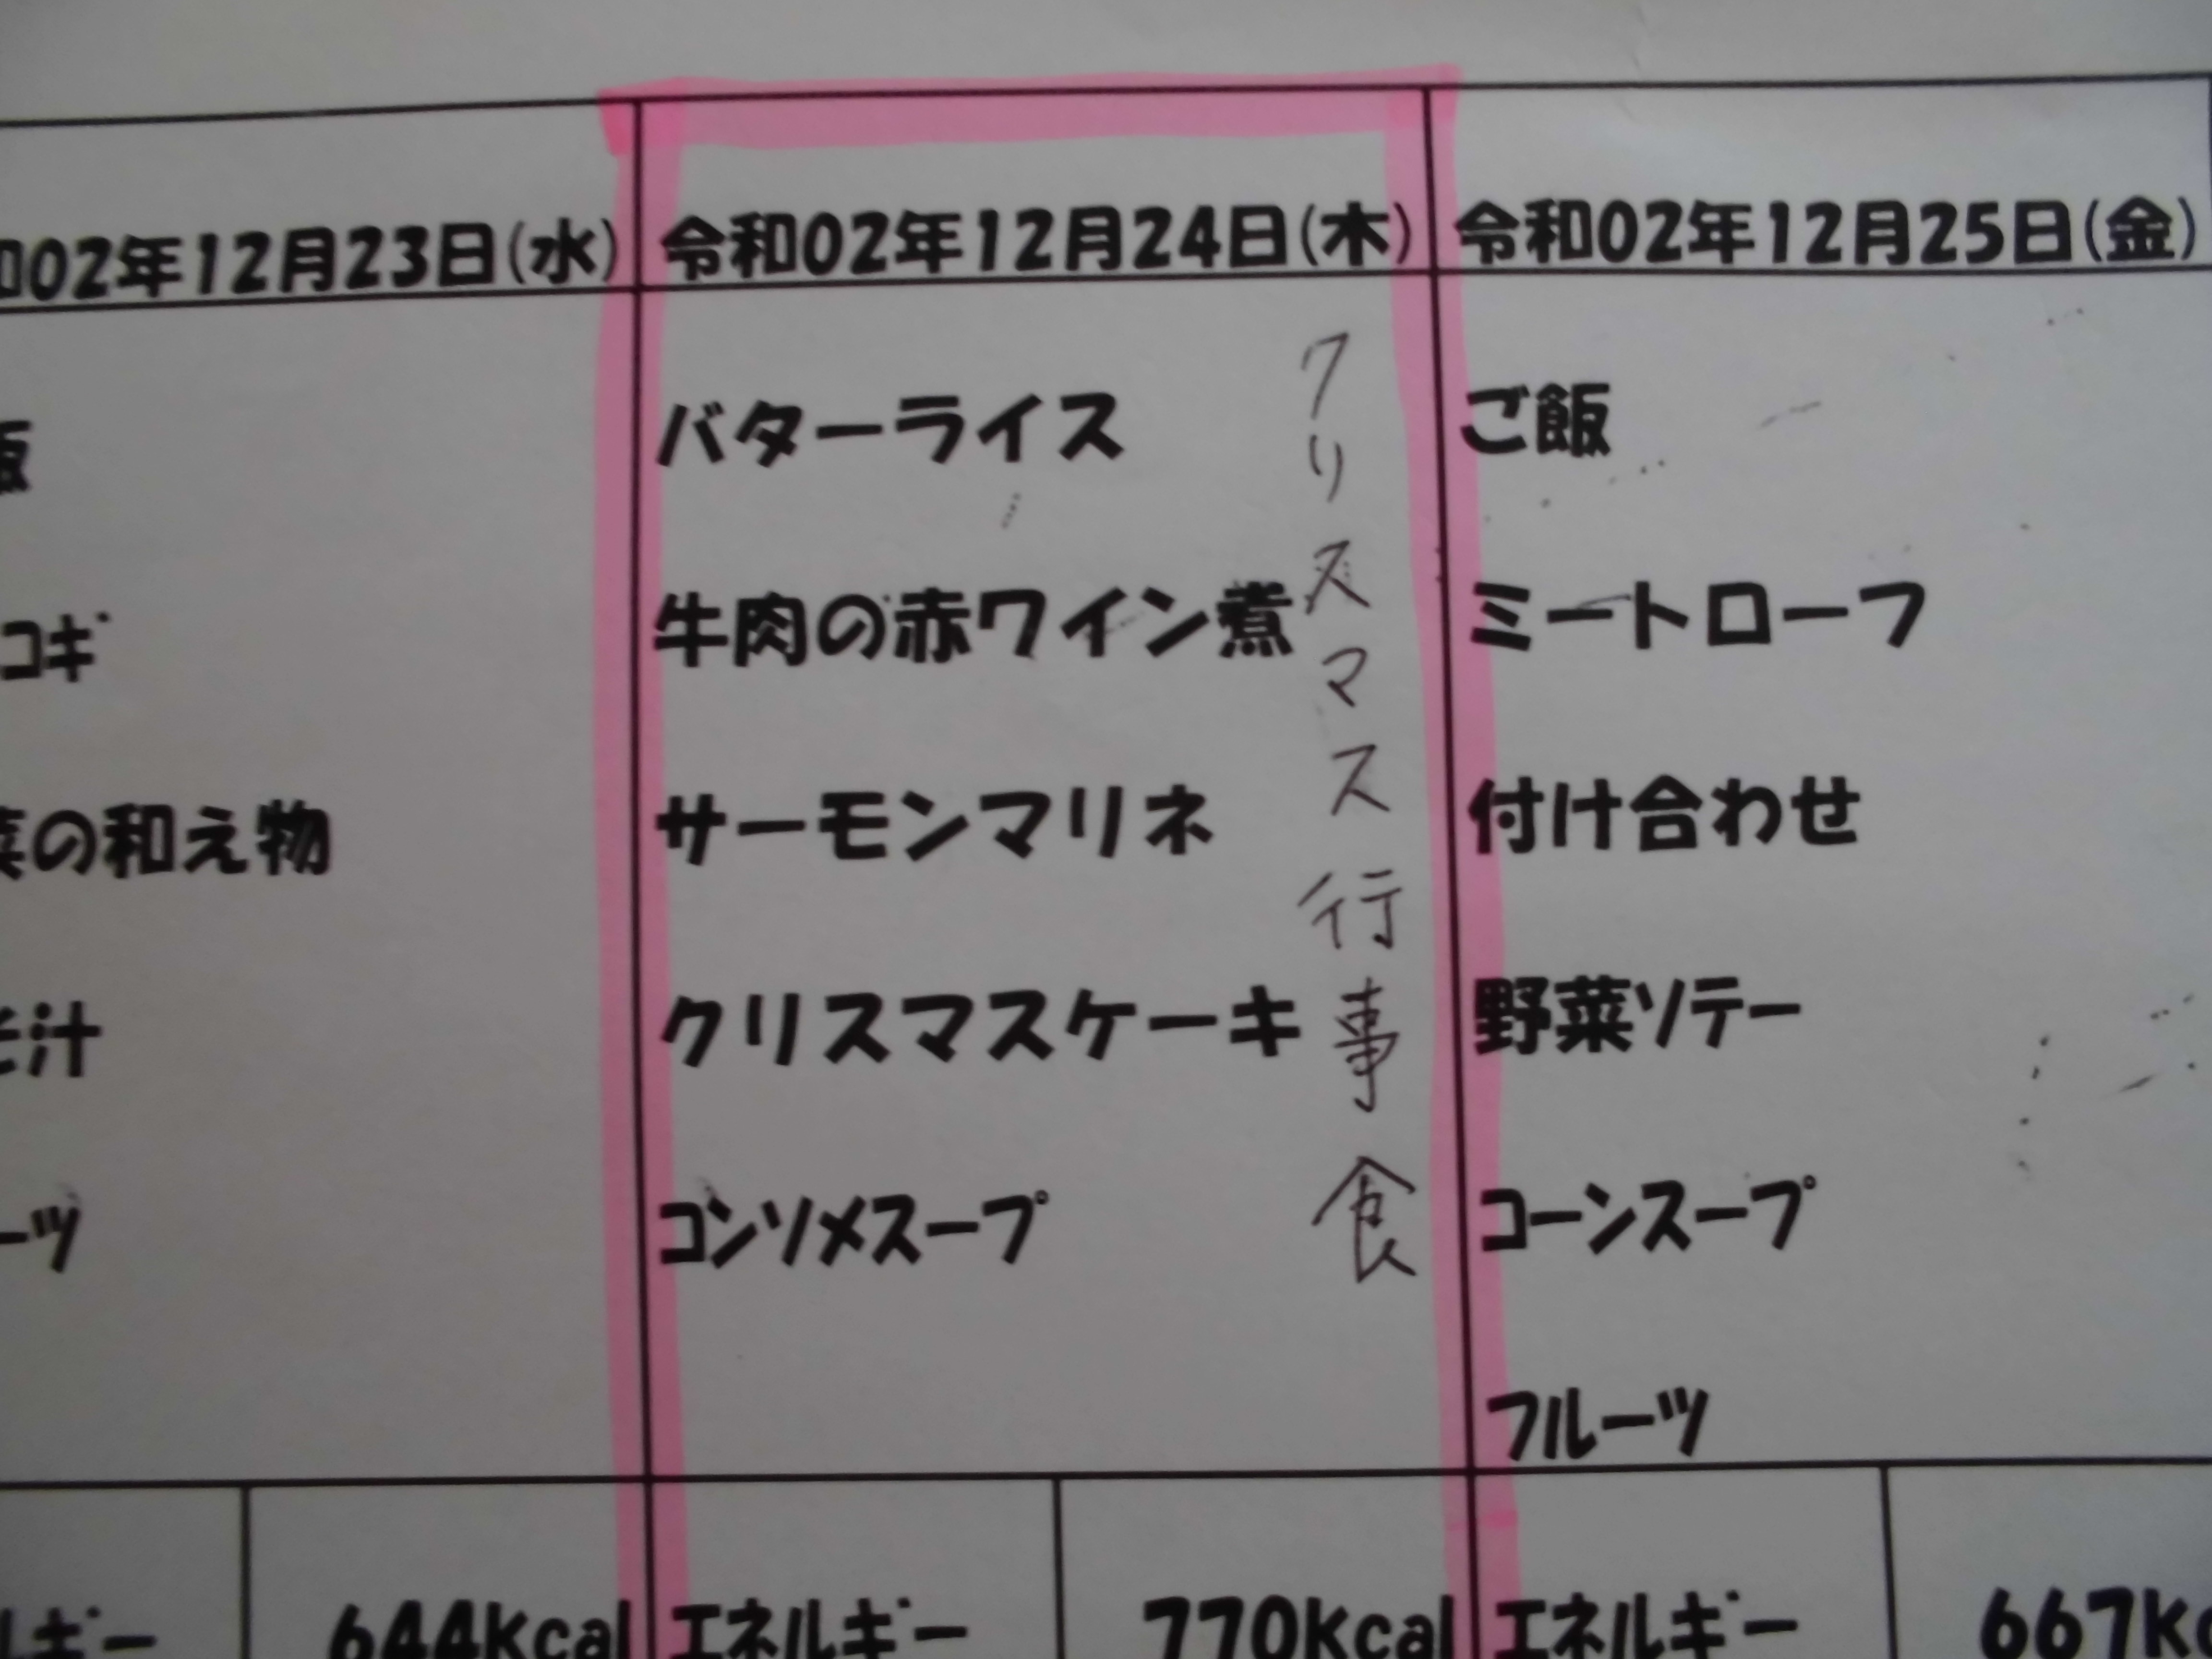 02年12月23日(水)
コギ
の和え物
汁
ーツ
ルギー 644Kcal
令和02年12月24日(木)
バターライス
牛肉の赤ワイン煮
サーモンマリネ
クリスマスケーキ
コンソメスープ
クリスマス行事食
エネルギー 770Kcal
令和02年12月25日(金)
ご飯
ミートローフ
付け合わせ
野菜ソテー
コーンスープ
フルーツ
エネルギー 667Kc